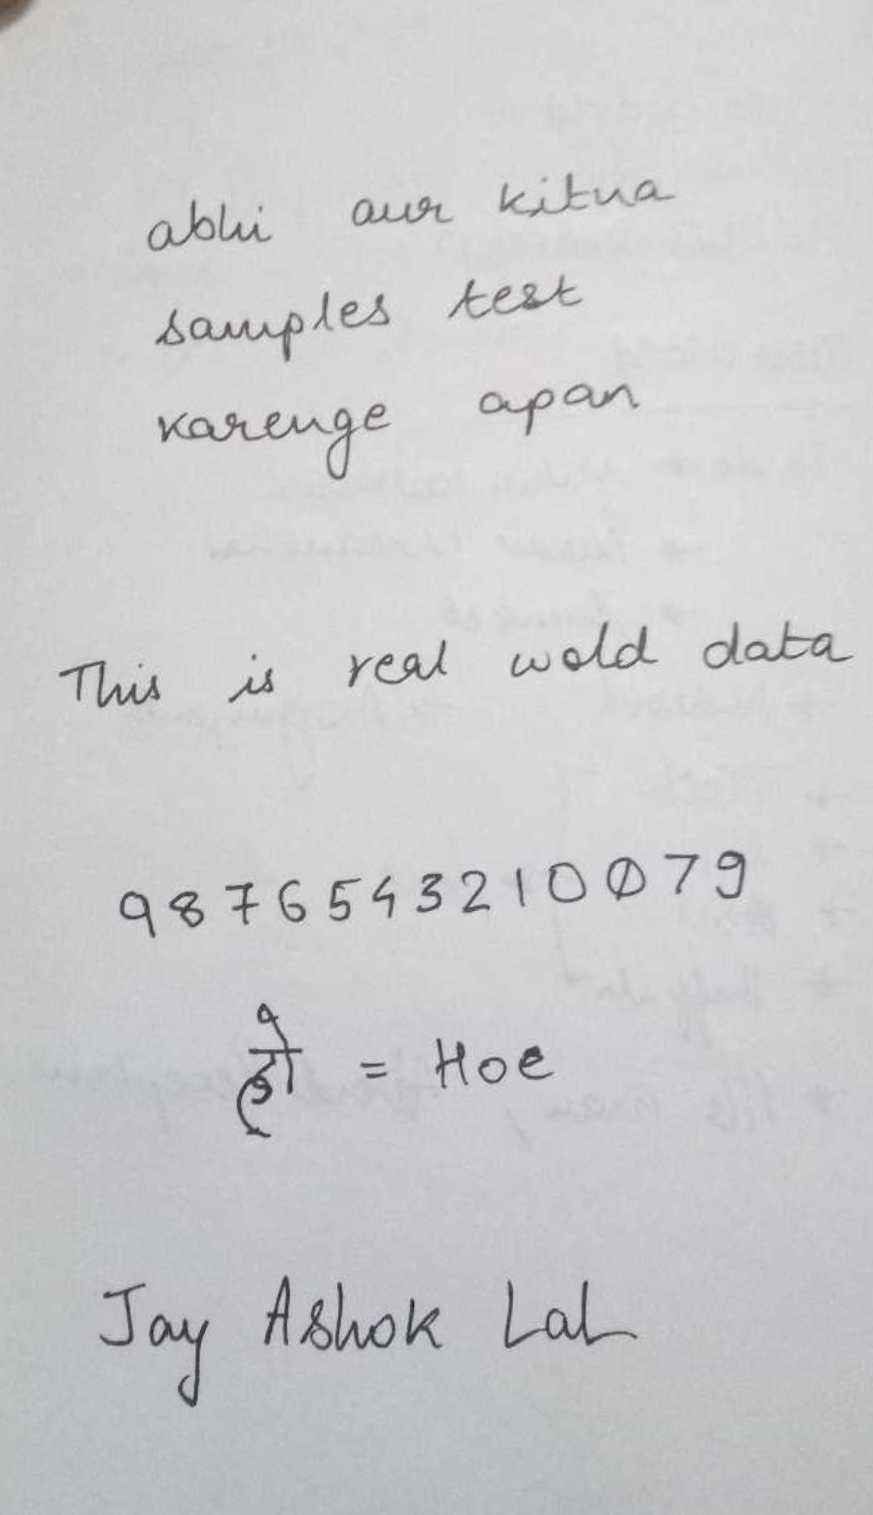 abhi aur kitna
samples test
karenge apan
This is real wold data
9876543210079
हो = Hoe
Jay Ashok Lal